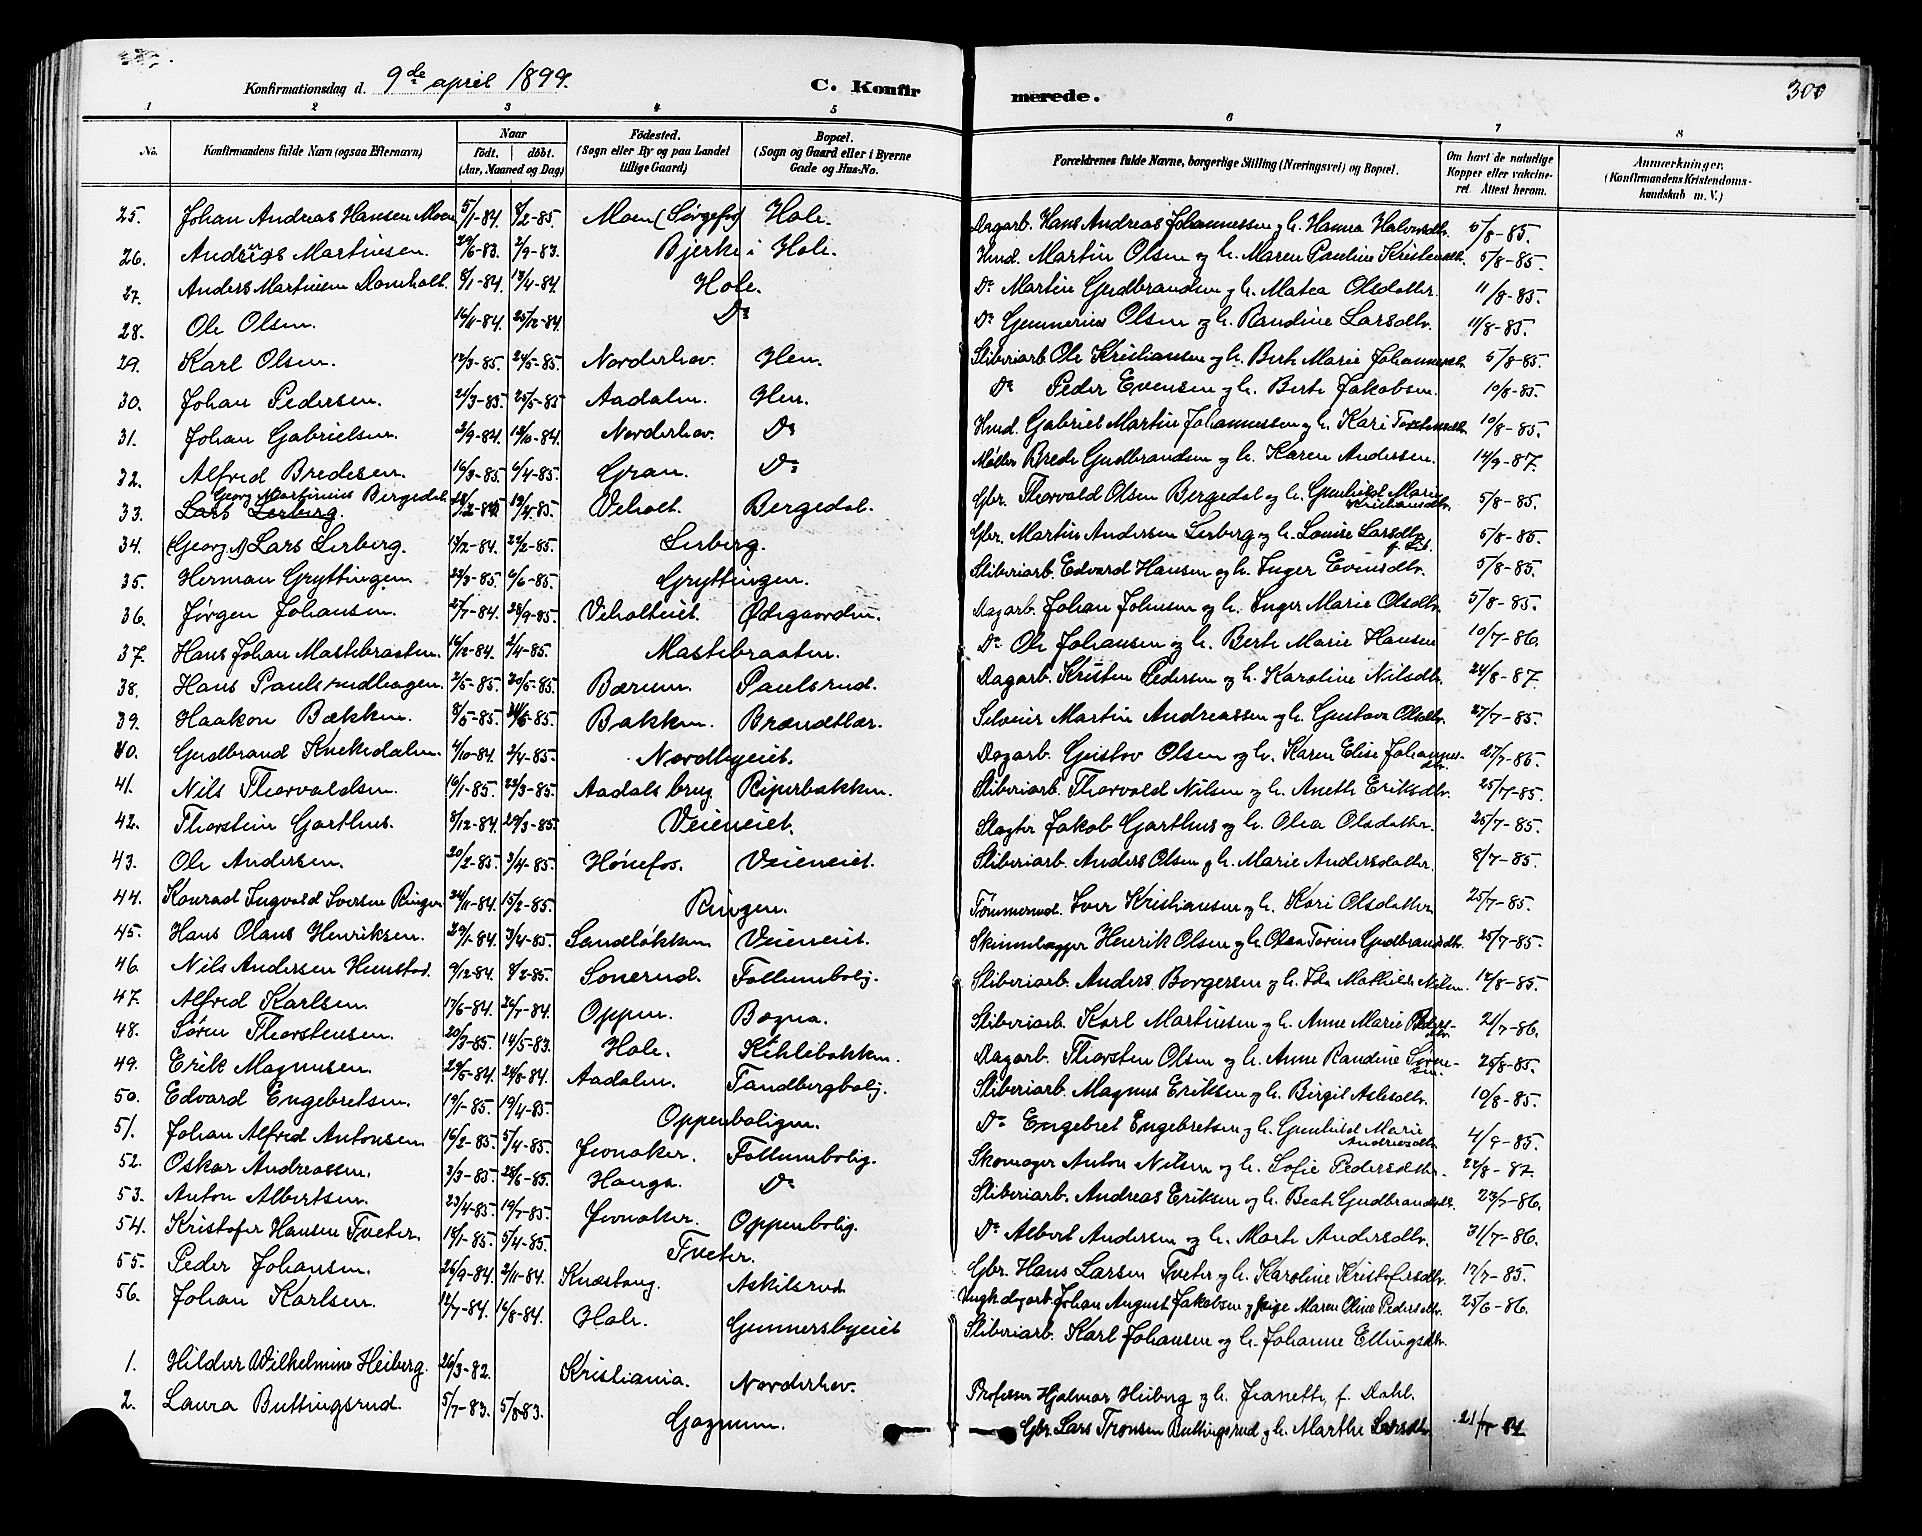 Konfirmationsdag d. 9de april 1899.
C. Konfirmerede.
300
1 2 3 4 5 6 7 8
No. Konfirmandens fulde Navn (ogsaa Efternavn) Naar födt. döbt. (Aar, Maaned og Dag) Födested. (Sogn eller By og paa Landet tillige Gaard) Bopæl. (Sogn og Gaard eller i Byerne Gade og Hus-No. Forældrenes fulde Navne, borgerlige Stilling (Næringsvei) og Bopæl. Om havt de naturlige Kopper eller vaccineret. Attest herom. Anmærkninger. (Konfirmandens Kristendomskundskab m. V.)
25. Johan Andreas Hansen Moen 5/1-84. 8/2-85. Moen (Sørgefos) Hole. Dagarb. Hans Andreas Johannessen og h. Hanna Halvorsdtr. 5/8-85.
26. Martinsen. 2/9-83. Bjerke i Hole. Hmd. Martin Olsen og h. Maren Pauline Kristensdtr. 5/8-85.
27. Anders Martinsen Domholt. 8/1-84. 13/4-84. Hole. Do Martin Gudbrandsen og h. Matea Olsdatter. 11/8-85.
28. Ole Olsen. 16/11-84. 25/12-84. Do Do Gunnerius Olsen og h. Randine Larsdtr. 11/8-85.
29. Karl Olsen. 12/3-85. 24/5-85. Norderhov. Hen. Sliberiarb. Ole Kristiansen og h. Berth Marie Johannesdtr. 5/8-85.
30. Johan Pedersen. 21/3-85. 25/5-85 Aadalen. Hen. Do Peder Evensen og h. Berte Jakobsen. 10/8-85.
31. Johan Gabrielsen. 2/9-84. 12/10-84. Norderhov. Do Hmd. Gabriel Martin Johannessen og h. Kari 10/8-85.
32. Alfred Bredesen. 16/3-85. 6/4-85. Gran. Do Møller Brede Gudbrandsen og h. Karen Andersen. 14/9-87.
33. Georg Martinius Bergedal. Lars Lerberg. Veholt. Bergedal. Gbr. Thorvald Olsen Bergedal og h. Gunhild Marie Kristiansdtr. 5/8-85.
34. Lars Lerberg. 13/2-84. 22/2-85. Lerberg. Gbr. Martin Andersen Lerberg og h. Louise Larsdtr. 5/8-85.
35. Herman Gryttingen. 23/3-85. 6/6-85. Gryttingen. Sliberiarb. Edvard Hansen og h. Inger Evensdtr. 5/8-85.
36. Jørgen Johansen. 27/7-84. 28/9-85. Veholteiet. Ødegaarden. Dagarb. Johan Johnsen og h. Inger Marie Olsdtr. 5/8-85.
37. Hans Johan Mastebraaten. 16/12-84. 2/4-85. Mastebraaten. Do Ole Johansen og h. Berte Marie Hansen 10/7-86.
38. Hans Paulsrudhagen. 2/5-85. 20/5-85. Bærum. Paulsrud. Dagarb. Kristen Pedersen og h. Karoline Nilsdtr. 24/8-87.
39. Haakon Bækken. 8/5-85. Bakken. Martin Andreassen og h. Gustava Olsdtr. 27/7-85.
40. Gudbrand Knekedalen. 4/10-84. 2/4-85. Nordbyeiet. Dagarb. Gustav Olsen og h. Karen Elise Johannesdtr. 27/7-85.
41. Nils Thorvaldsen. 10/1-85. 22/3-85. Aadalsbrug Riperbakken. Sliberiarb. Thorvald Nilsen og h. Anette Eriksdtr. 25/7-85.
42. Thorstein Garthus. 8/12-84. 29/3-85. Veieneiet. Slagter Jakob Garthus og h. Olea Olsdatter. 25/7-85.
43. Ole Andersen. 20/2-85. 3/4-85. Hönefos. Veieneiet. Sliberiarb. Anders Olsen og h. Marie Andersdatter. 8/7-85.
44. Konrad Ingvald Iversen Ringen 24/11-84. 15/2-85. Ringen. Tømmermd. Iver Kristiansen og h. Kari Olsdatter. 25/7-85.
45. Hans Olaus Henriksen. 29/1-84. 3/4-85. Sandløkken Veieneiet. Skinnelægger Henrik Olsen og h. Olea Gudbrandsdtr. 25/7-85.
46. Nils Andersen Hunstad. 9/12-84. 8/2-85. Sonerud. Follumbolig. Sliberiarb. Anders Borgersen og h. Ida Mathilde Nilsen. 14/8-85.
47. Alfred Karlsen. 17/6-84. 26/7-84. Oppen. Bægna. Sliberiarb. Karl Martinsen og h. Anne Marie Pedersdtr. 21/7-86.
48. Sören Thorstensen. 20/3-85. 14/5-83. Hole. Kihlebakken. Dagarb. Thorsten Olsen og h. Anne Randine Sorensen. 25/8-85.
49. Erik Magnusen. 29/5-84. 24/8-84. Aadalen. Tandbergbolig. Sliberiarb. Magnus Eriksen og h. Birgit Aslesdtr. 10/8-85.
50. Edvard Engebretsen. 19/1-85. 19/4-85. Oppenboligen. Do Engebret Engebretsen og h. Gunhild Marie Andreasdtr. 4/9-85.
51. Johan Alfred Antonsen 16/2-85. 5/4-85. Jevnaker. Follumbolig. Skomager Anton Nilsen og h. Sofie Pedersdatter. 22/8-87.
52. Oskar Andreassen. 3/3-85. 28/6-85. Hauga. Do Sliberiarb. Andreas Eriksen og h. Beate Gudbrandsdtr. 23/7-86.
53. Anton Albertsen. 23/4-85. 19/7-85. Jevnaker. Oppenbolig. Do Albert Andersen og h. Marte Andersdtr. 31/7-86.
54. Kristofer Hansen Tveter. 18/1-85. 5/4-85. Tveter. Gbr. Hans Larsen Tveter og h. Karoline Kristofersdtr. 17/7-85.
55. Peder Johansen. 26/9-84. 2/11-84. Knæstang. Askilsrud. Ungk. dagarb. Johan August Jakobsen og pige Maren Oline Pedersdtr. 25/6-86.
56. Johan Karlsen. 12/7-84. 16/8-84. Hole. Gunnersbyeiet Sliberiarb. Karl Johansen og h. Johanne Ellingsdtr.
1. Hildur Wilhelmine Heiberg. 26/3-82. Kristiania. Norderhov. Professor Hjalmar Heiberg og h. Jeanette, f. Dahl.
2. Laura Buttingsrud. 5/7-83. 5/8-83. Gagnum. Gbr. Lars Tronsen Buttingsrud og h. Marthe